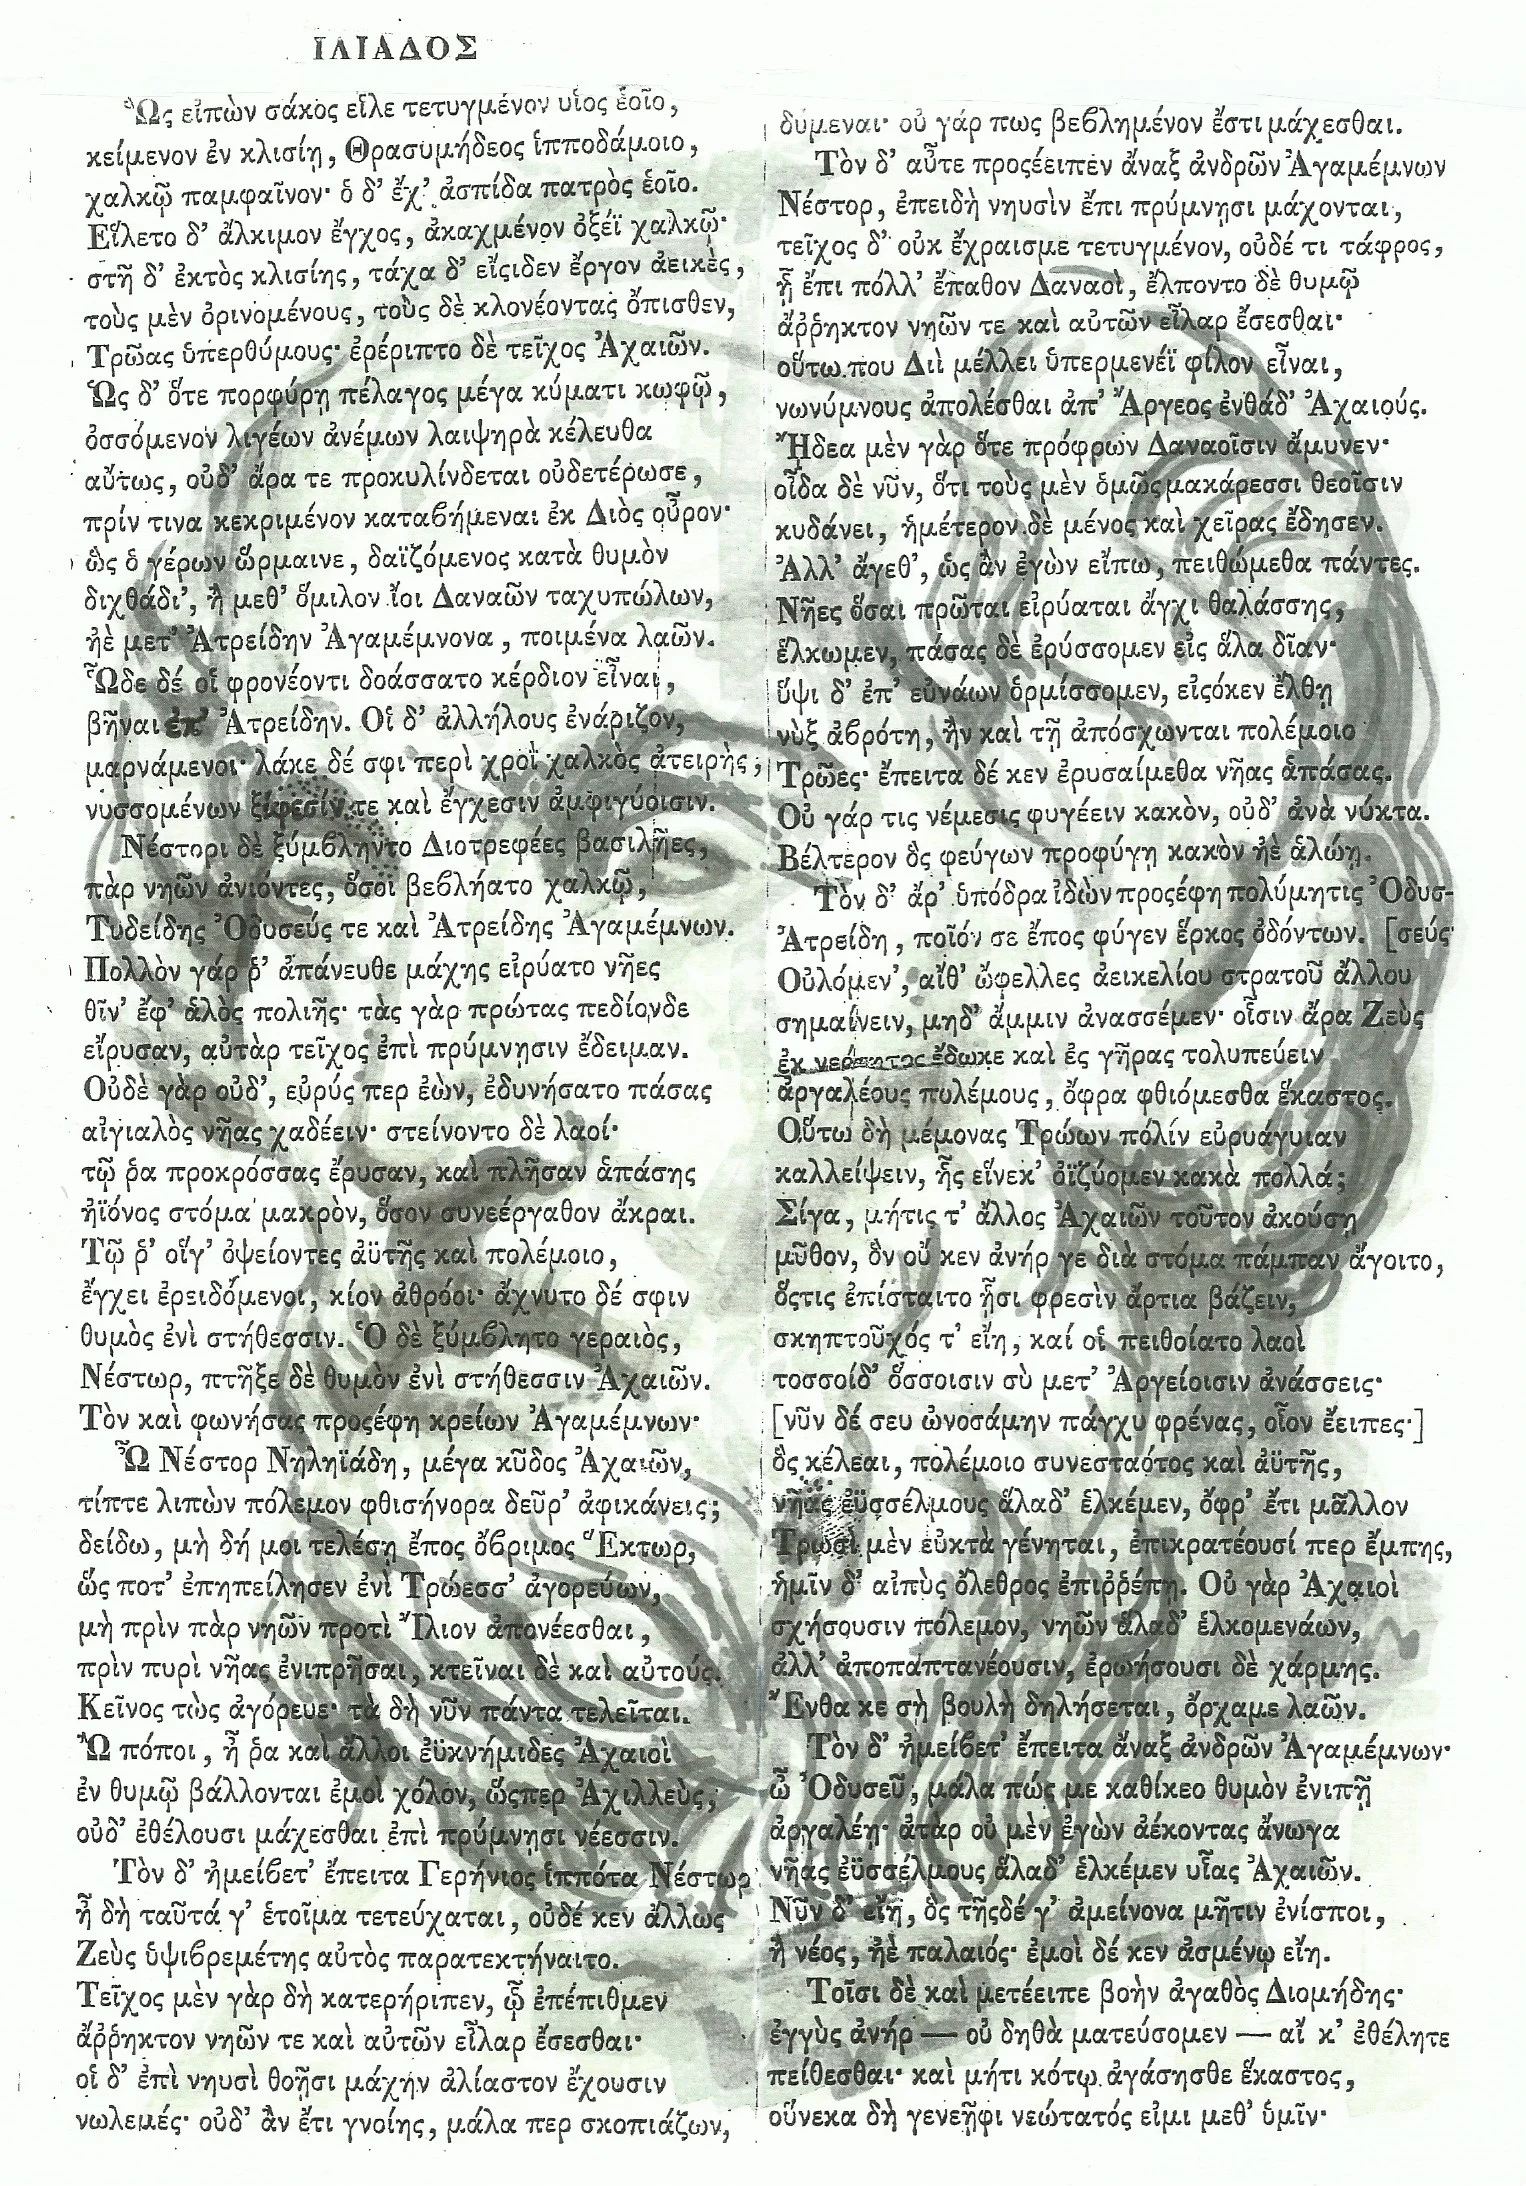 ΙΛΙΑΔΟΣ
Ὣς εἰπὼν σάκος εἷλε τετυγμένον υἷος ἑοῖο,
κείμενον ἐν κλισίῃ, Θρασυμήδεος ἱπποδάμοιο,
χαλκῷ παμφαῖνον· ὁ δ’ ἔχ’ ἀσπίδα πατρὸς ἑοῖο.
Εἵλετο δ’ ἄλκιμον ἔγχος, ἀκαχμένον ὀξέϊ χαλκῷ·
στῆ δ’ ἐκτὸς κλισίης, τάχα δ’ εἴςιδεν ἔργον ἀεικὲς,
τοὺς μὲν ὀρινομένους, τοὺς δὲ κλονέοντας ὄπισθεν,
Τρῶας ὑπερθύμους· ἐρέριπτο δὲ τεῖχος Ἀχαιῶν.
Ὡς δ’ ὅτε πορφύρῃ πέλαγος μέγα κύματι κωφῷ,
ὀσσόμενον λιγέων ἀνέμων λαιψηρὰ κέλευθα
αὔτως, οὐδ’ ἄρα τε προκυλίνδεται οὐδετέρωσε,
πρίν τινα κεκριμένον καταϐήμεναι ἐκ Διὸς οὖρον·
ὣς ὁ γέρων ὥρμαινε, δαϊζόμενος κατὰ θυμὸν
διχθάδι’, ἢ μεθ’ ὅμιλον ἴοι Δαναῶν ταχυπώλων,
ἠὲ μετ’ Ἀτρείδην Ἀγαμέμνονα, ποιμένα λαῶν.
Ὧδε δέ οἱ φρονέοντι δοάσσατο κέρδιον εἶναι,
βῆναι ἐπ’ Ἀτρείδην. Οἱ δ’ ἀλλήλους ἐνάριζον,
μαρνάμενοι· λάκε δέ σφι περὶ χροῒ χαλκὸς ἀτειρὴς,
νυσσομένων ξίφεσίν τε καὶ ἔγχεσιν ἀμφιγύοισιν.
Νέστορι δὲ ξύμϐληντο Διοτρεφέες βασιλῆες,
πὰρ νηῶν ἀνιόντες, ὅσοι βεϐλήατο χαλκῷ,
Τυδείδης Ὀδυσεύς τε καὶ Ἀτρείδης Ἀγαμέμνων.
Πολλὸν γάρ ῥ’ ἀπάνευθε μάχης εἰρύατο νῆες
θῖν’ ἔφ’ ἁλὸς πολιῆς· τὰς γὰρ πρώτας πεδίονδε
εἴρυσαν, αὐτὰρ τεῖχος ἐπὶ πρύμνῃσιν ἔδειμαν.
Οὐδὲ γὰρ οὐδ’, εὐρύς περ ἐὼν, ἐδυνήσατο πάσας
αἰγιαλὸς νῆας χαδέειν· στείνοντο δὲ λαοί·
τῷ ῥα προκρόσσας ἔρυσαν, καὶ πλῆσαν ἁπάσης
ἠϊόνος στόμα μακρὸν, ὅσον συνεέργαθον ἄκραι.
Τῷ ῥ’ οἵγ’ ὀψείοντες ἀϋτῆς καὶ πολέμοιο,
ἔγχει ἐρειδόμενοι, κίον ἀθρόοι· ἄχνυτο δέ σφιν
θυμὸς ἐνὶ στήθεσσιν. Ὁ δὲ ξύμϐλητο γεραιὸς,
Νέστωρ, πτῆξε δὲ θυμὸν ἐνὶ στήθεσσιν Ἀχαιῶν.
Τὸν καὶ φωνήσας προςέφη κρείων Ἀγαμέμνων·
Ὦ Νέστορ Νηληϊάδη, μέγα κῦδος Ἀχαιῶν,
τίπτε λιπὼν πόλεμον φθισήνορα δεῦρ’ ἀφικάνεις;
δείδω, μὴ δή μοι τελέσῃ ἔπος ὄϐριμος Ἕκτωρ,
ὥς ποτ’ ἐπηπείλησεν ἐνὶ Τρώεσσ’ ἀγορεύων,
μὴ πρὶν πὰρ νηῶν προτὶ Ἴλιον ἀπονέεσθαι,
πρὶν πυρὶ νῆας ἐνιπρῆσαι, κτεῖναι δὲ καὶ αὐτούς.
Κεῖνος τὼς ἀγόρευε· τὰ δὴ νῦν πάντα τελεῖται.
Ὢ πόποι, ἦ ῥα καὶ ἄλλοι ἐϋκνήμιδες Ἀχαιοὶ
ἐν θυμῷ βάλλονται ἐμοὶ χόλον, ὥςπερ Ἀχιλλεὺς,
οὐδ’ ἐθέλουσι μάχεσθαι ἐπὶ πρύμνῃσι νέεσσιν.
Τὸν δ’ ἠμείϐετ’ ἔπειτα Γερήνιος ἱππότα Νέστωρ
ἦ δὴ ταῦτά γ’ ἑτοῖμα τετεύχαται, οὐδέ κεν ἄλλως
Ζεὺς ὑψιϐρεμέτης αὐτὸς παρατεκτήναιτο.
Τεῖχος μὲν γὰρ δὴ κατερήριπεν, ᾧ ἐπέπιθμεν
ἄῤῥηκτον νηῶν τε καὶ αὐτῶν εἶλαρ ἔσεσθαι·
οἱ δ’ ἐπὶ νηυσὶ θοῇσι μάχην ἀλίαστον ἔχουσιν
νωλεμές· οὐδ’ ἂν ἔτι γνοίης, μάλα περ σκοπιάζων,
δύμεναι· οὐ γάρ πως βεϐλημένον ἔστι μάχεσθαι.
Τὸν δ’ αὖτε προςέειπεν ἄναξ ἀνδρῶν Ἀγαμέμνων
Νέστορ, ἐπειδὴ νηυσὶν ἔπι πρύμνῃσι μάχονται,
τεῖχος δ’ οὐκ ἔχραισμε τετυγμένον, οὐδέ τι τάφρος,
ᾗ ἔπι πόλλ’ ἔπαθον Δαναοὶ, ἔλποντο δὲ θυμῷ
ἄῤῥηκτον νηῶν τε καὶ αὐτῶν εἶλαρ ἔσεσθαι·
οὕτω που Διὶ μέλλει ὑπερμενέϊ φίλον εἶναι,
νωνύμνους ἀπολέσθαι ἀπ’ Ἄργεος ἐνθάδ’ Ἀχαιούς.
Ἤδεα μὲν γὰρ ὅτε πρόφρων Δαναοῖσιν ἄμυνεν·
οἶδα δὲ νῦν, ὅτι τοὺς μὲν ὁμῶς μακάρεσσι θεοῖσιν
κυδάνει, ἡμέτερον δὲ μένος καὶ χεῖρας ἔδησεν.
Ἀλλ’ ἄγεθ’, ὡς ἂν ἐγὼν εἴπω, πειθώμεθα πάντες.
Νῆες ὅσαι πρῶται εἰρύαται ἄγχι θαλάσσης,
ἕλκωμεν, πάσας δὲ ἐρύσσομεν εἰς ἅλα δῖαν·
ὕψι δ’ ἐπ’ εὐνάων ὁρμίσσομεν, εἰςόκεν ἔλθῃ
νὺξ ἀϐρότη, ἢν καὶ τῇ ἀπόσχωνται πολέμοιο
Τρῶες· ἔπειτα δέ κεν ἐρυσαίμεθα νῆας ἁπάσας.
Οὐ γάρ τις νέμεσις φυγέειν κακὸν, οὐδ’ ἀνὰ νύκτα.
Βέλτερον ὃς φεύγων προφύγῃ κακὸν ἠὲ ἁλώῃ.
Τὸν δ’ ἄρ’ ὑπόδρα ἰδὼν προςέφη πολύμητις Ὀδυσ-
Ἀτρείδη, ποῖόν σε ἔπος φύγεν ἕρκος ὀδόντων. [σεύς·
Οὐλόμεν’, αἴθ’ ὤφελλες ἀεικελίου στρατοῦ ἄλλου
σημαίνειν, μηδ’ ἄμμιν ἀνασσέμεν· οἷσιν ἄρα Ζεὺς
ἐκ νεότητος ἔδωκε καὶ ἐς γῆρας τολυπεύειν
ἀργαλέους πολέμους, ὄφρα φθιόμεσθα ἕκαστος.
Οὕτω δὴ μέμονας Τρώων πόλιν εὐρυάγυιαν
καλλείψειν, ἧς εἵνεκ’ ὀϊζύομεν κακὰ πολλά;
Σίγα, μήτις τ’ ἄλλος Ἀχαιῶν τοῦτον ἀκούσῃ
μῦθον, ὃν οὔ κεν ἀνήρ γε διὰ στόμα πάμπαν ἄγοιτο,
ὅςτις ἐπίσταιτο ᾗσι φρεσὶν ἄρτια βάζειν,
σκηπτοῦχός τ’ εἴη, καί οἱ πειθοίατο λαοὶ
τοσσοίδ’ ὅσσοισιν σὺ μετ’ Ἀργείοισιν ἀνάσσεις·
[νῦν δέ σευ ὠνοσάμην πάγχυ φρένας, οἷον ἔειπες·]
ὃς κέλεαι, πολέμοιο συνεσταότος καὶ ἀϋτῆς,
νῆας ἐϋσσέλμους ἅλαδ’ ἑλκέμεν, ὄφρ’ ἔτι μᾶλλον
Τρωσὶ μὲν εὐκτὰ γένηται, ἐπικρατέουσί περ ἔμπης,
ἡμῖν δ’ αἰπὺς ὄλεθρος ἐπιῤῥέπῃ. Οὐ γὰρ Ἀχαιοὶ
σχήσουσιν πόλεμον, νηῶν ἅλαδ’ ἑλκομενάων,
ἀλλ’ ἀποπαπτανέουσιν, ἐρωήσουσι δὲ χάρμης.
Ἔνθα κε σὴ βουλὴ δηλήσεται, ὄρχαμε λαῶν.
Τὸν δ’ ἠμείϐετ’ ἔπειτα ἄναξ ἀνδρῶν Ἀγαμέμνων·
ὦ Ὀδυσεῦ, μάλα πώς με καθίκεο θυμὸν ἐνιπῇ
ἀργαλέῃ· ἀτὰρ οὐ μὲν ἐγὼν ἀέκοντας ἄνωγα
νῆας ἐϋσσέλμους ἅλαδ’ ἑλκέμεν υἷας Ἀχαιῶν.
Νῦν δ’ εἴη, ὃς τῆςδέ γ’ ἀμείνονα μῆτιν ἐνίσποι,
ἢ νέος, ἠὲ παλαιός· ἐμοὶ δέ κεν ἀσμένῳ εἴη.
Τοῖσι δὲ καὶ μετέειπε βοὴν ἀγαθὸς Διομήδης·
ἐγγὺς ἀνήρ — οὐ δηθὰ ματεύσομεν — αἴ κ’ ἐθέλητε
πείθεσθαι· καὶ μήτι κότῳ ἀγάσησθε ἕκαστος,
οὕνεκα δὴ γενεῇφι νεώτατός εἰμι μεθ’ ὑμῖν·